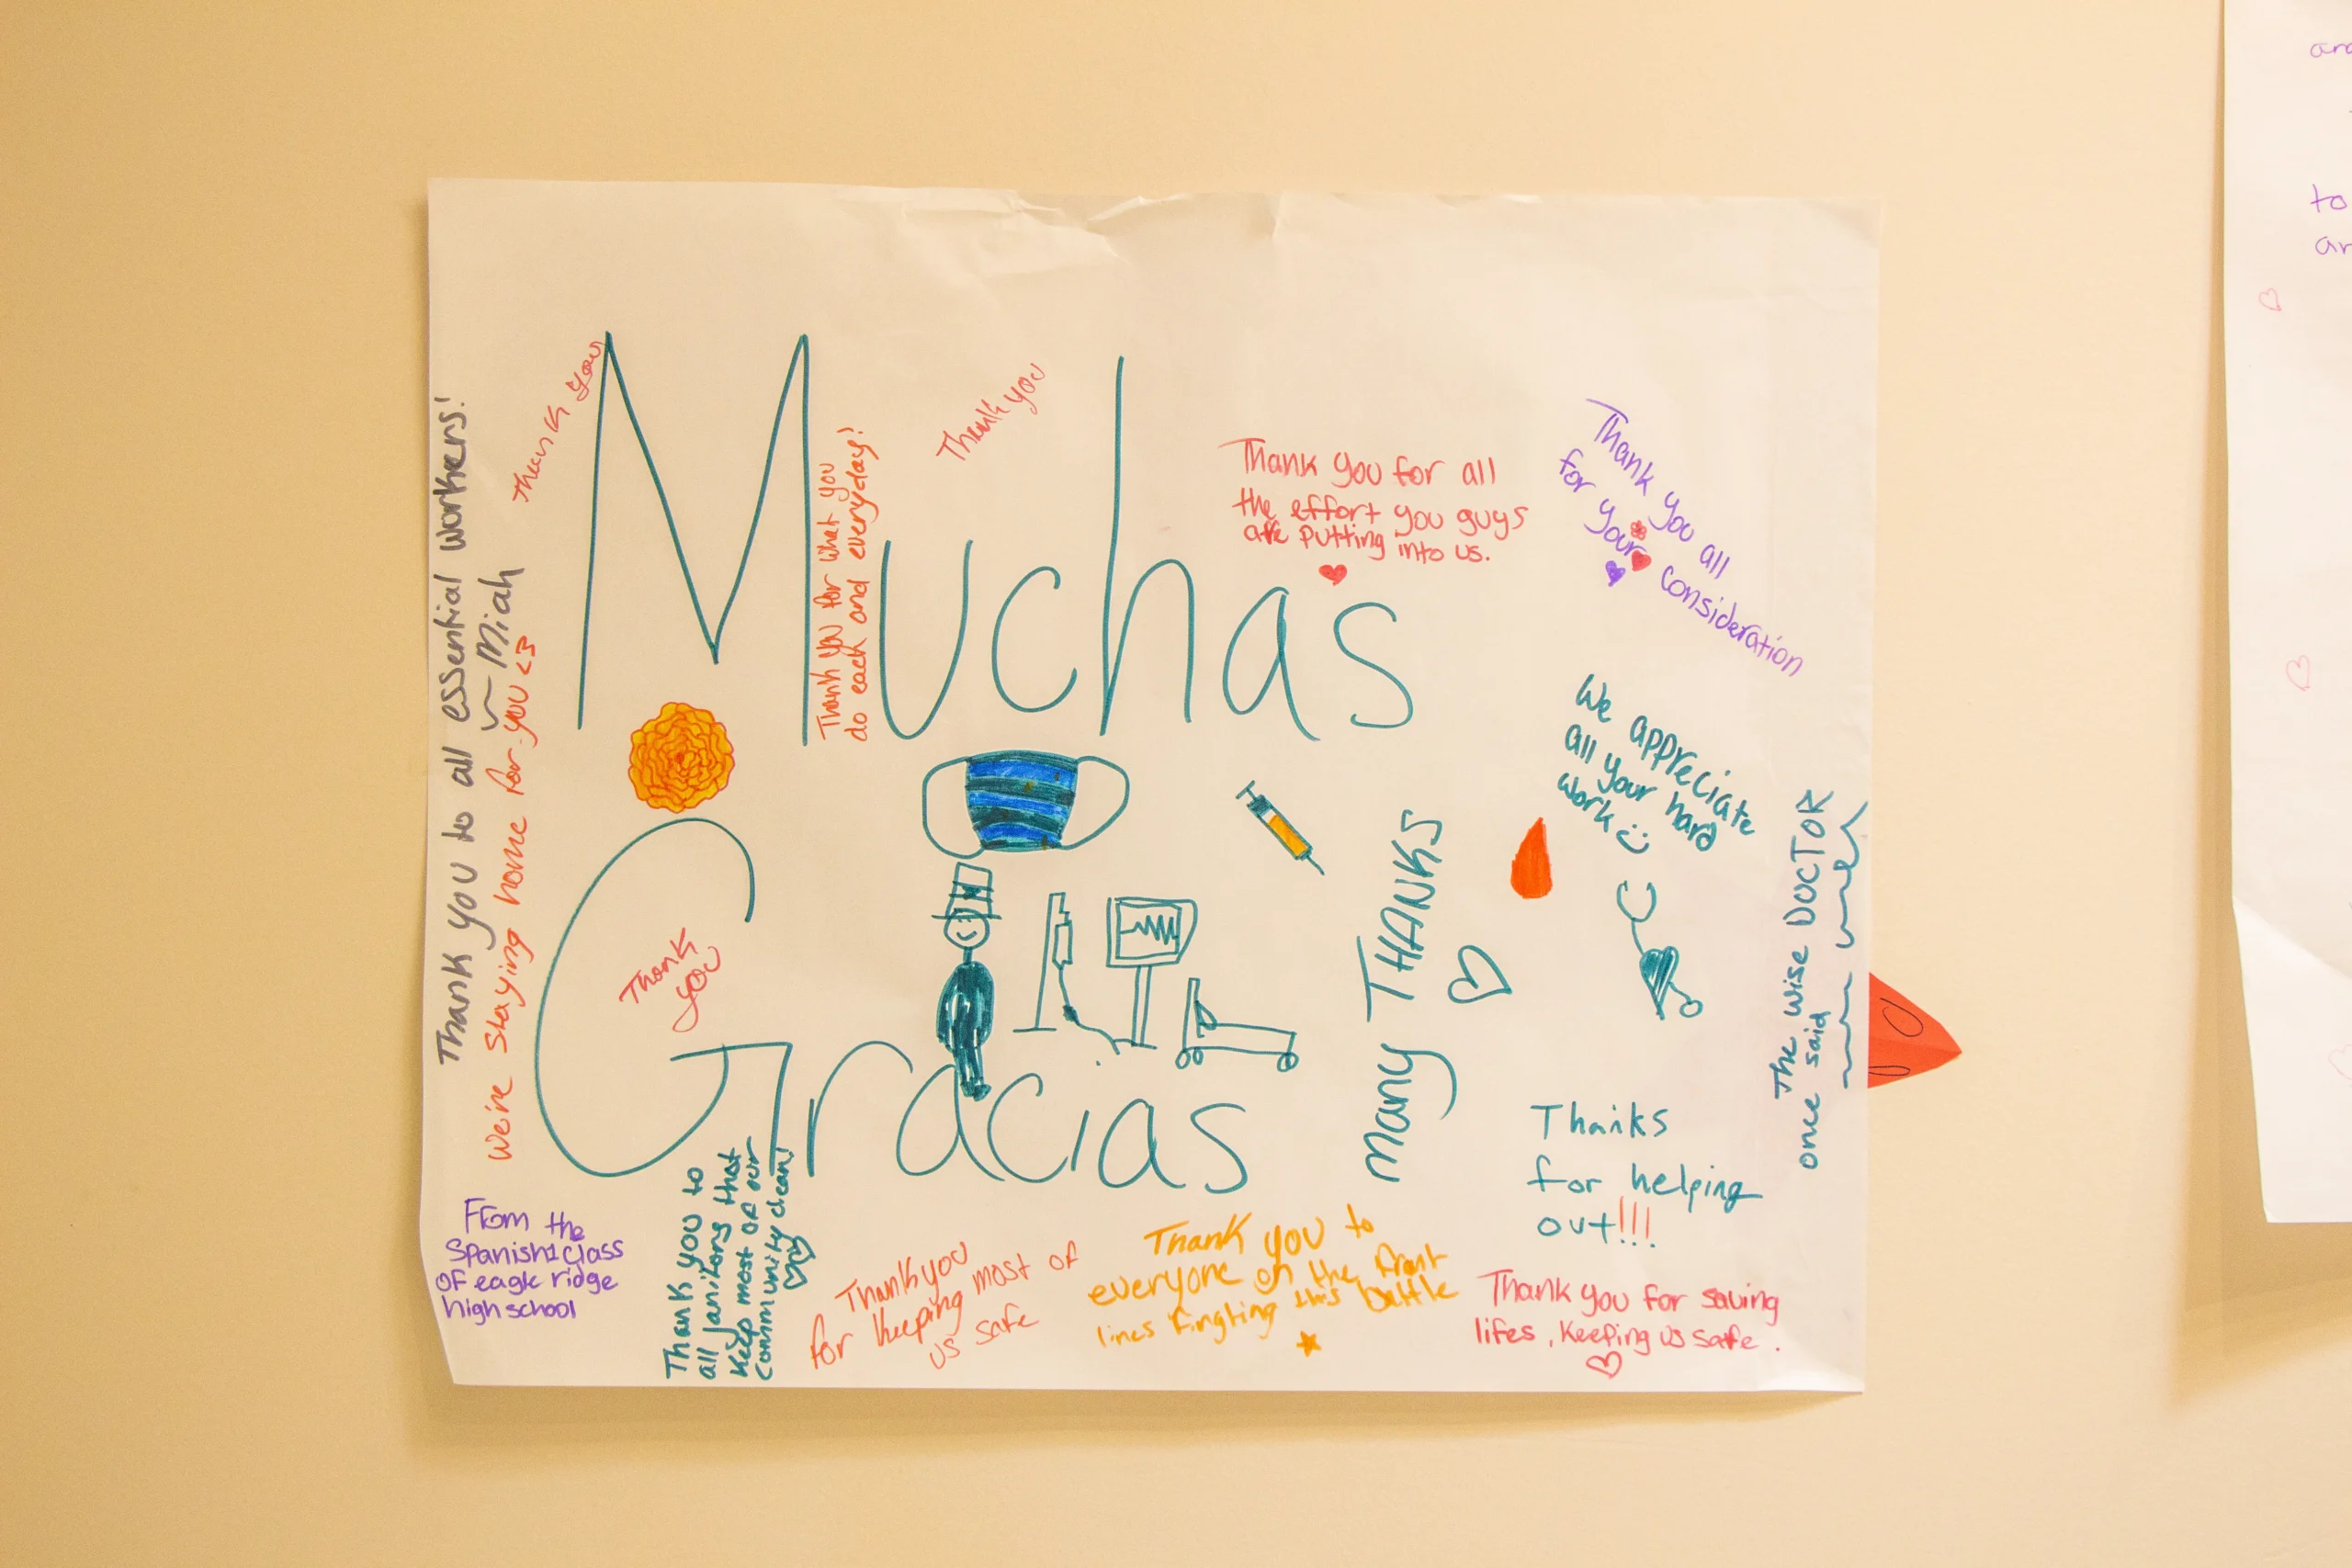 Muchas
Gracias
Thank you to all essential workers!
~ Miah
We're staying home for you <3
Thank you
Thank you for what you
do each and everyday!
Thank you
Thank you for all
the effort you guys
are putting into us.
Thank you all
for your consideration
We appreciate
all your hard
work :)
Thank
you
many THANKS
The wise DOCTOR
once said
Thanks
for helping
out!!!
From the
Spanish1 class
OF eagle ridge
high school
Thank you to
all janitors that
keep most OF our
community clean!
Thank you
for keeping most of
us safe
Thank you to
everyone on the front
lines fingting this battle
Thank you for saving
lifes, keeping us safe.
to